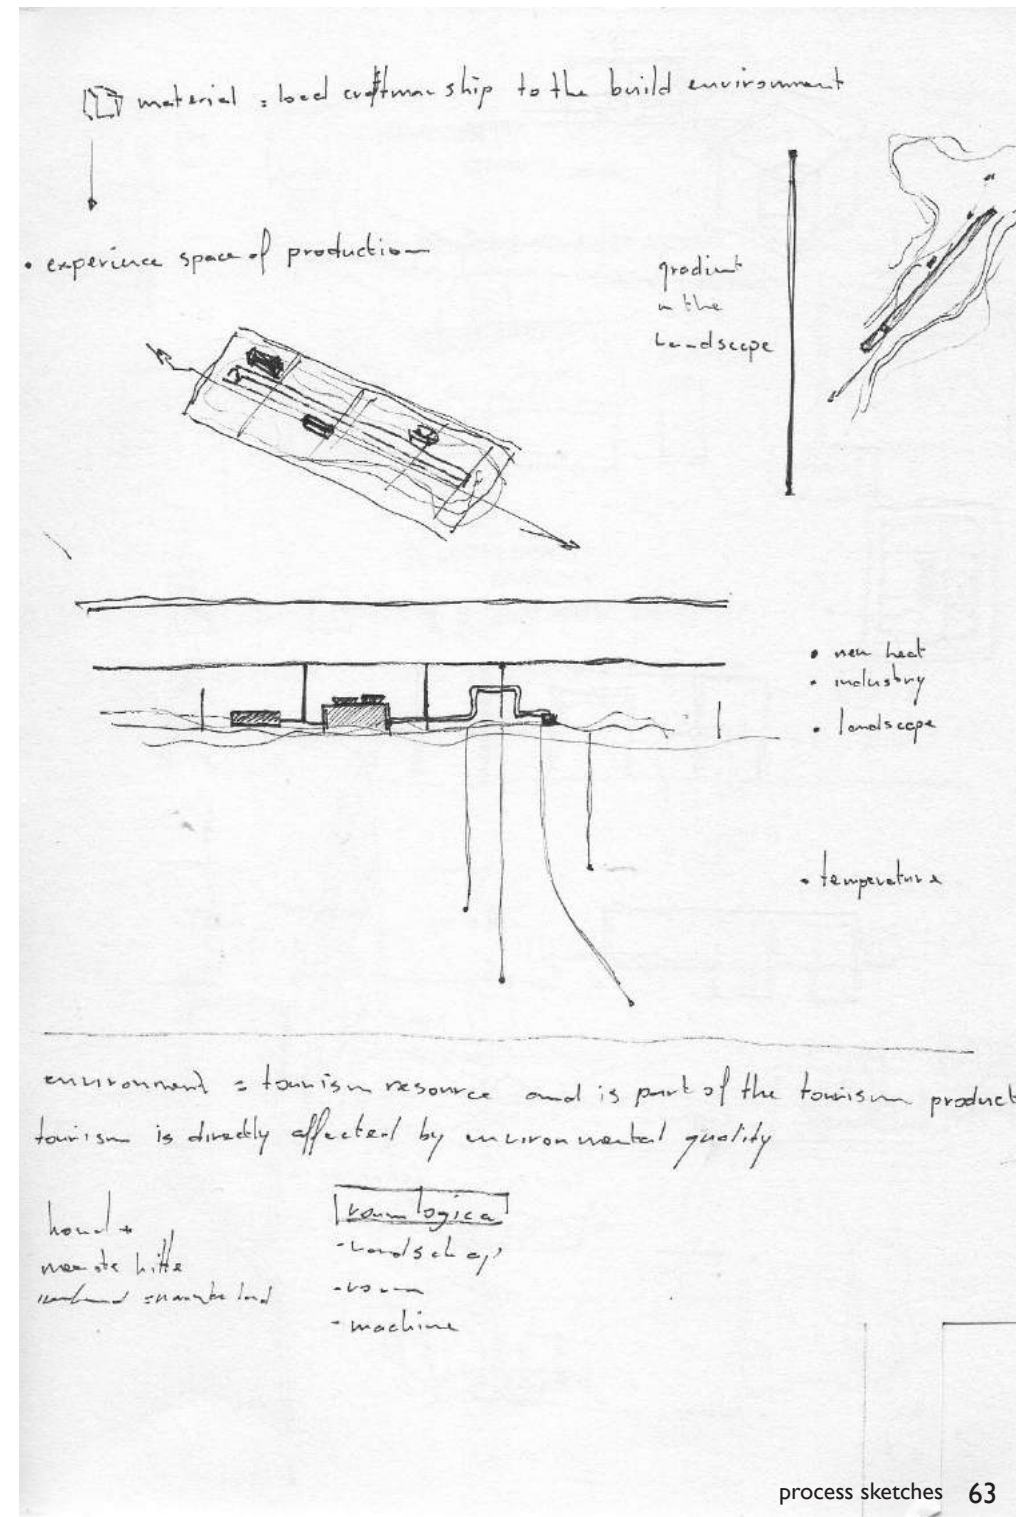 material = local craftmanship to the build environment
• experience space of production
gradient
in the
landscape
• new heat
• industry
• landscape
• temperature
environment = tourism resource and is part of the tourism product
tourism is directly affected by environmental quality
hitte
logica
- landschap
- machine
process sketches 63